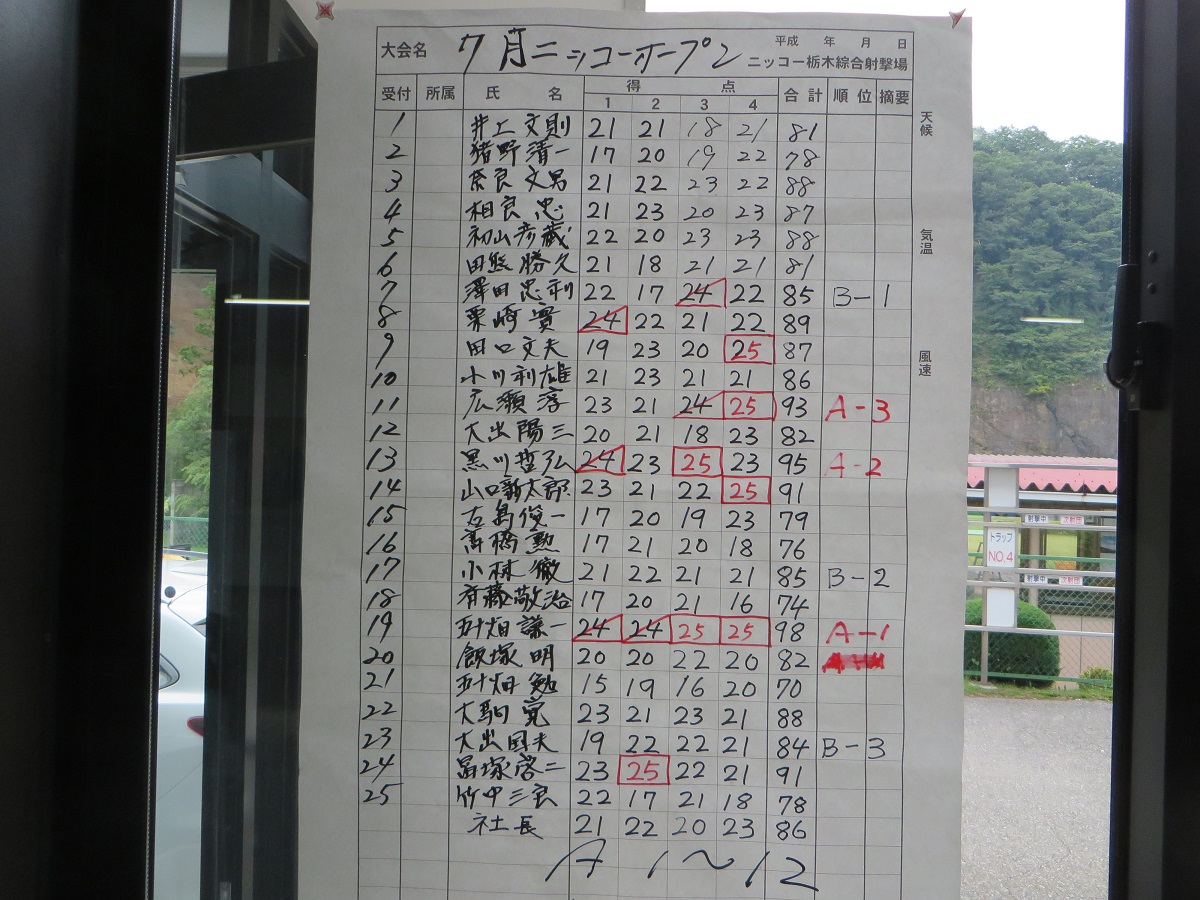 大会名 7月ニッコーオープン 平成 年 月 日
ニッコー栃木綜合射撃場
受付 所属 氏名 得点 合計 順位 摘要
1 2 3 4
1 井上文則 21 21 18 21 81
2 猪野清一 17 20 19 22 78
3 奈良文男 21 22 23 22 88
4 相良忠 21 23 20 23 87
5 初山彦蔵 22 20 23 23 88
6 田熊勝久 21 18 21 21 81
7 澤田忠利 22 17 24 22 85 B-1
8 栗崎實 24 22 21 22 89
9 田口文夫 19 23 20 25 87
10 小川利雄 21 23 21 21 86
11 広瀬淳 23 21 24 25 93 A-3
12 大出陽三 20 21 18 23 82
13 黒川哲弘 24 23 25 23 95 A-2
14 山口新太郎 23 21 22 25 91
15 古島俊一 17 20 19 23 79
16 高橋勲 17 21 20 18 76
17 小林徹 21 22 21 21 85 B-2
18 斉藤敬治 17 20 21 16 74
19 五十畑謙一 24 24 25 25 98 A-1
20 飯塚明 20 20 22 20 82
21 五十畑勉 15 19 16 20 70
22 大駒寛 23 21 23 21 88
23 大出国夫 19 22 22 21 84 B-3
24 冨塚啓二 23 25 22 21 91
25 竹中三良 22 17 21 18 78
社長 21 22 20 23 86
A 1～12
天候
気温
風速
射撃中 次射団
トラップ
NO.4
射撃中 次射団